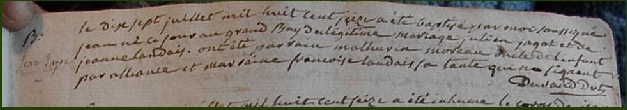 le dix sept juillet mil huit cent seize a été baptisé par moi soussigné
B:
jean né ce jour au grand Bray du légitime mariage julien pagot et de
jeanne landais. ont été parrain mathurin moreau oncle de l'enfant
par alliance et marraine francoise landais sa tante qui ne signent
juillet mil huit cent seize a été inhumé le corps de